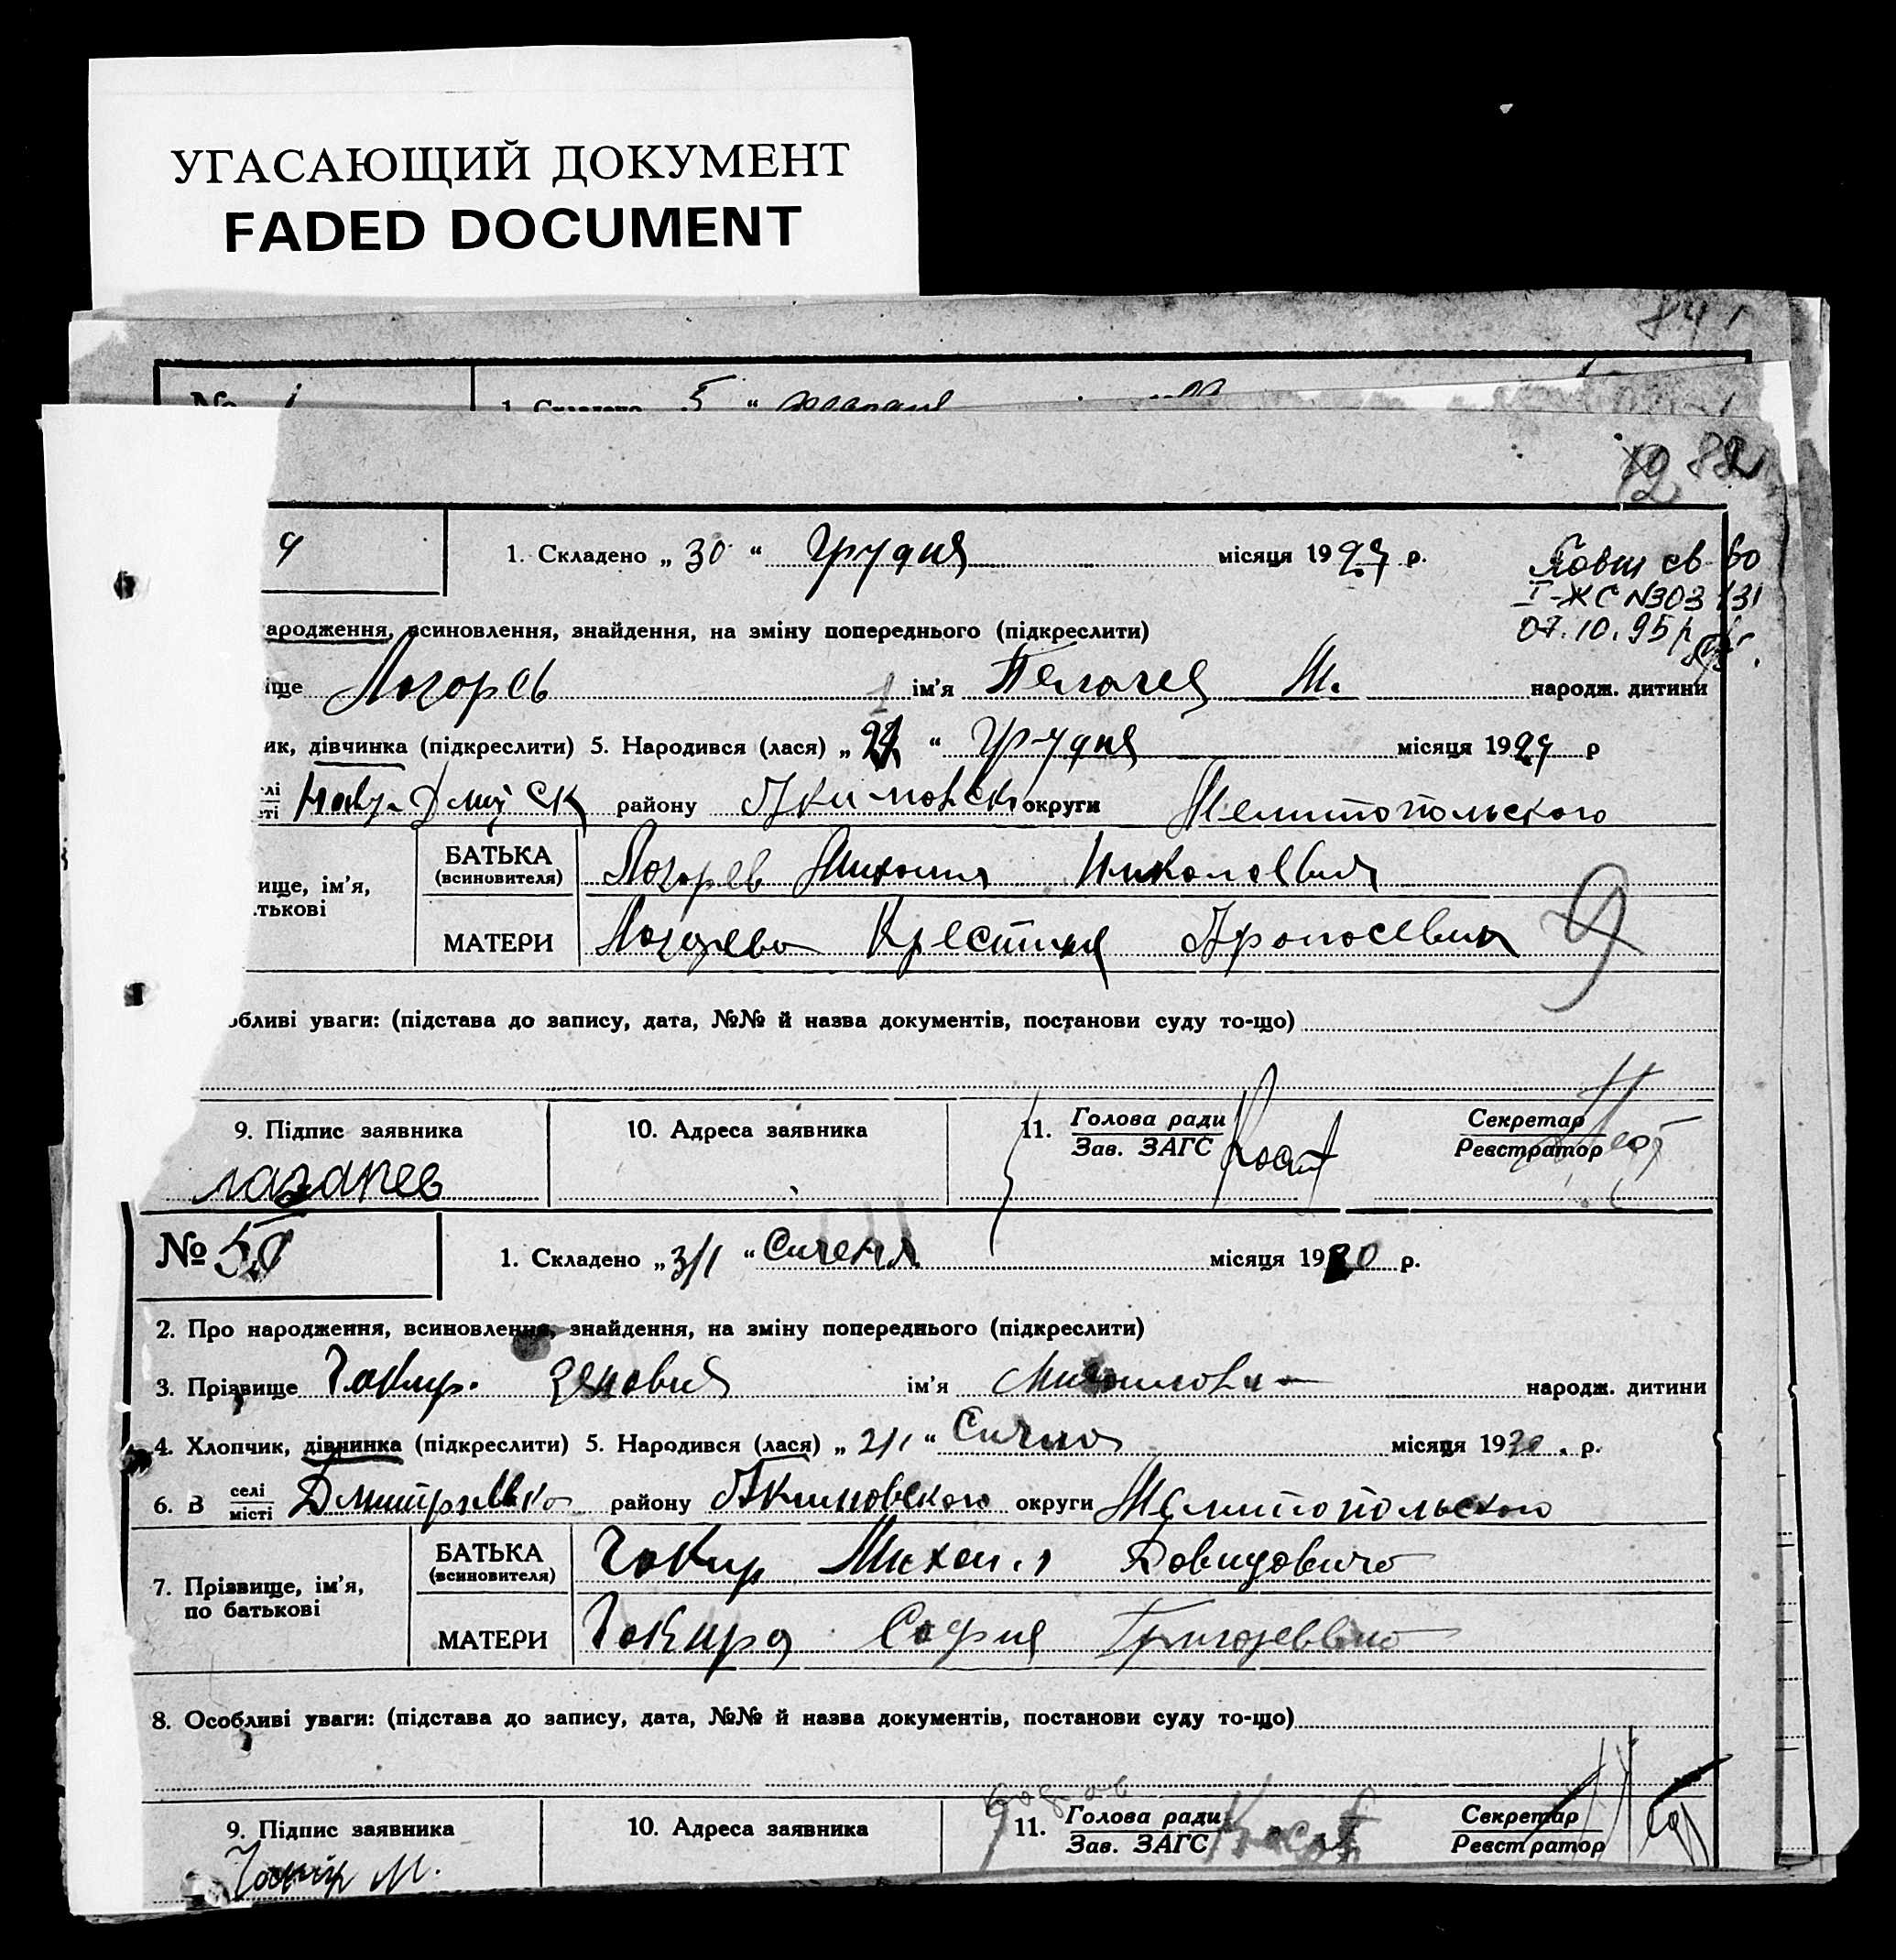 УГАСАЮЩИЙ ДОКУМЕНТ
FADED DOCUMENT
84
№ 1. Складено 5 "
82
1. Складено „ 30 " Грудня місяця 1929 р.
Повт св во
І-ЖС №303131
07.10.95р
ародження, всиновлення, знайдення, на зміну попереднього (підкреслити)
іще Логорев ім'я Пелагея М. народж. дитини
ик, дівчинка (підкреслити) 5. Народився (лася) „ " Грудня місяця 1929 р
району Акимовск округи Мелитопольского
ище, ім'я,
тькові
БАТЬКА
(всиновителя)
Логорев Михаил Николаевич
МАТЕРИ
9
обливі уваги: (підстава до запису, дата, №№ й назва документів, постанови суду то-що)
9. Підпис заявника 10. Адреса заявника 11. Голова ради Секретар
Зав. ЗАГС Реєстратор
№ 1. Складено „ 3/I " Сичня місяця 1930 р.
2. Про народження, всиновлення, знайдення, на зміну попереднього (підкреслити)
3. Прізвище Чакир. Зеновия ім'я Михаиловна народж. дитини
4. Хлопчик, дівчинка (підкреслити) 5. Народився (лася) „ 2/I " Сична місяця 1930. р.
6. В селі Дмитриевка району Акимовского округи Мелитопольского
місті
7. Прізвище, ім'я,
по батькові
БАТЬКА
(всиновителя)
Чакир Михаил Давидович
МАТЕРИ Чакира София Григоревна
8. Особливі уваги: (підстава до запису, дата, №№ й назва документів, постанови суду то-що)
9. Підпис заявника 10. Адреса заявника 11. Голова ради Секретар
Зав. ЗАГС Реєстратор
Чакир М.